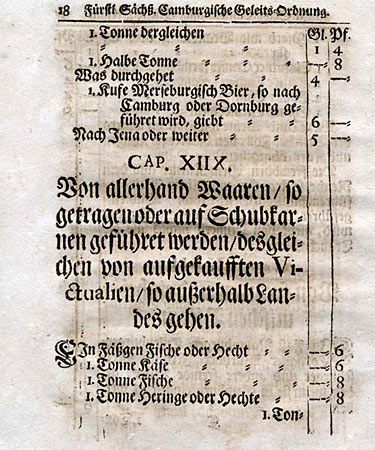 18 Fürstl. Sächß. Camburgische Geleits-Ordnung.
1. Tonne dergleichen Gl. Pf.
〃 〃 〃 〃 〃 1 4
1. Halbe Tonne 〃 〃 — 8
Was durchgehet 〃 〃 4 —
1. Kufe Merseburgisch Bier, so nach
Camburg oder Dornburg ge-
führet wird, giebt 〃 〃 6 —
Nach Jena oder weiter 〃 〃 5 —
CAP. XIIX.
Von allerhand Waaren/ so
getragen oder auf Schubkar-
nen geführet werden/desglei-
chen von aufgekaufften Vi-
ctualien/ so außerhalb Lan-
des gehen.
EIn Fäßgen Fische oder Hecht 〃 〃 — 6
1. Tonne Käse 〃 〃 〃 — 6
1. Tonne Fische 〃 〃 〃 — 8
1. Tonne Heringe oder Hechte 〃 — 8
1. Ton-